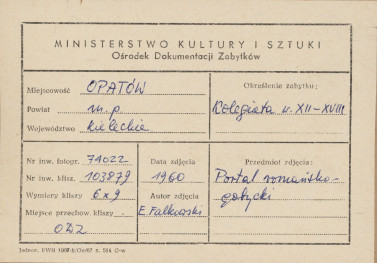 MINISTERSTWO KULTURY I SZTUKI
Ośrodek Dokumentacji Zabytków
Miejscowość OPATÓW
Powiat m.p.
Województwo kieleckie
Określenie zabytku:
Kolegiata w. XII-XVIII
Nr inw. fotogr. 74022
Nr inw. klisz. 103879
Wymiary kliszy 6x9
Miejsce przechow. kliszy
ODZ
Data zdjęcia
1960
Autor zdjęcia
E. Falkowski
Przedmiot zdjęcia:
Portal romańsko-
gotycki